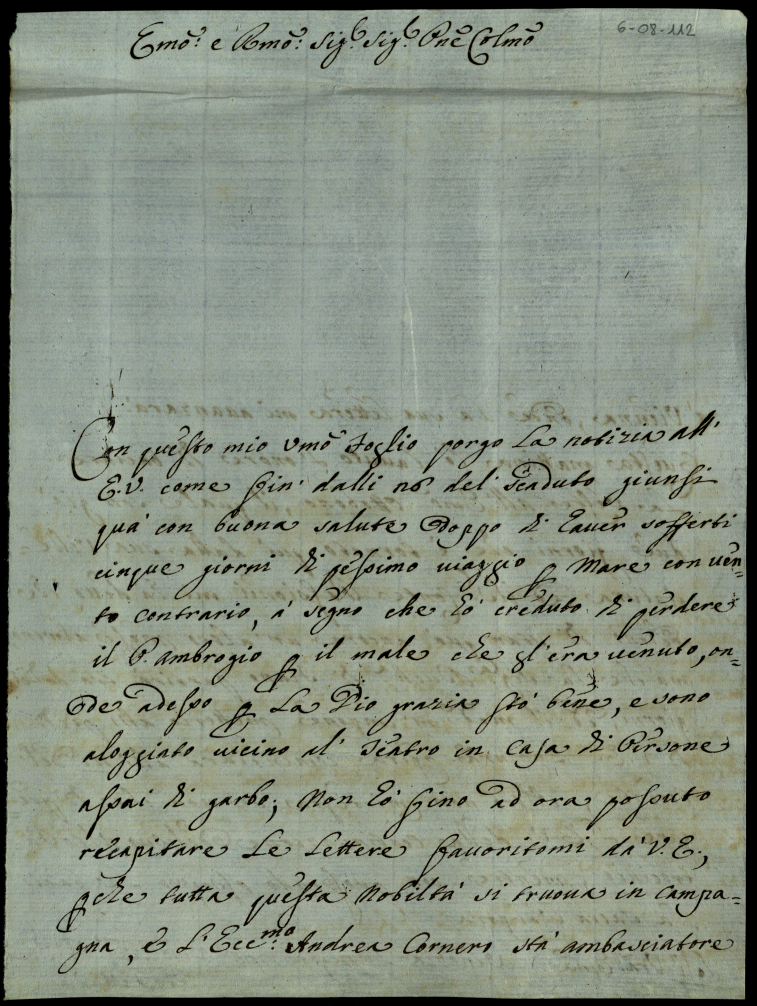 6-08-112
Emõ: e Rmõ: Sigr Sigr Pñe Colmõ
Con questo mio Vmõ foglio porgo La notizia all'
E.V. come fin' dalli n6 del' scaduto giunsi
quà con buona salute doppo di haver sofferti
cinque giorni di pessimo uiaggio ꝑ Mare con uen=
to contrario, à segno che hò creduto di perdere
il P. ambrogio ꝑ il male che gl'era uenuto, on=
de adesso ꝑ La Dio grazia stò bene, e sono
aloggiato uicino al' Teatro in Casa di Persone
assai di garbo; Non hò sino ad ora possuto
recapitare Le Lettere fauoritomi dà V.E.,
ꝑche tutta questa Nobiltà si truoua in Campa=
gna, è L'Eccmo: Andrea Cornero stà ambasciatore